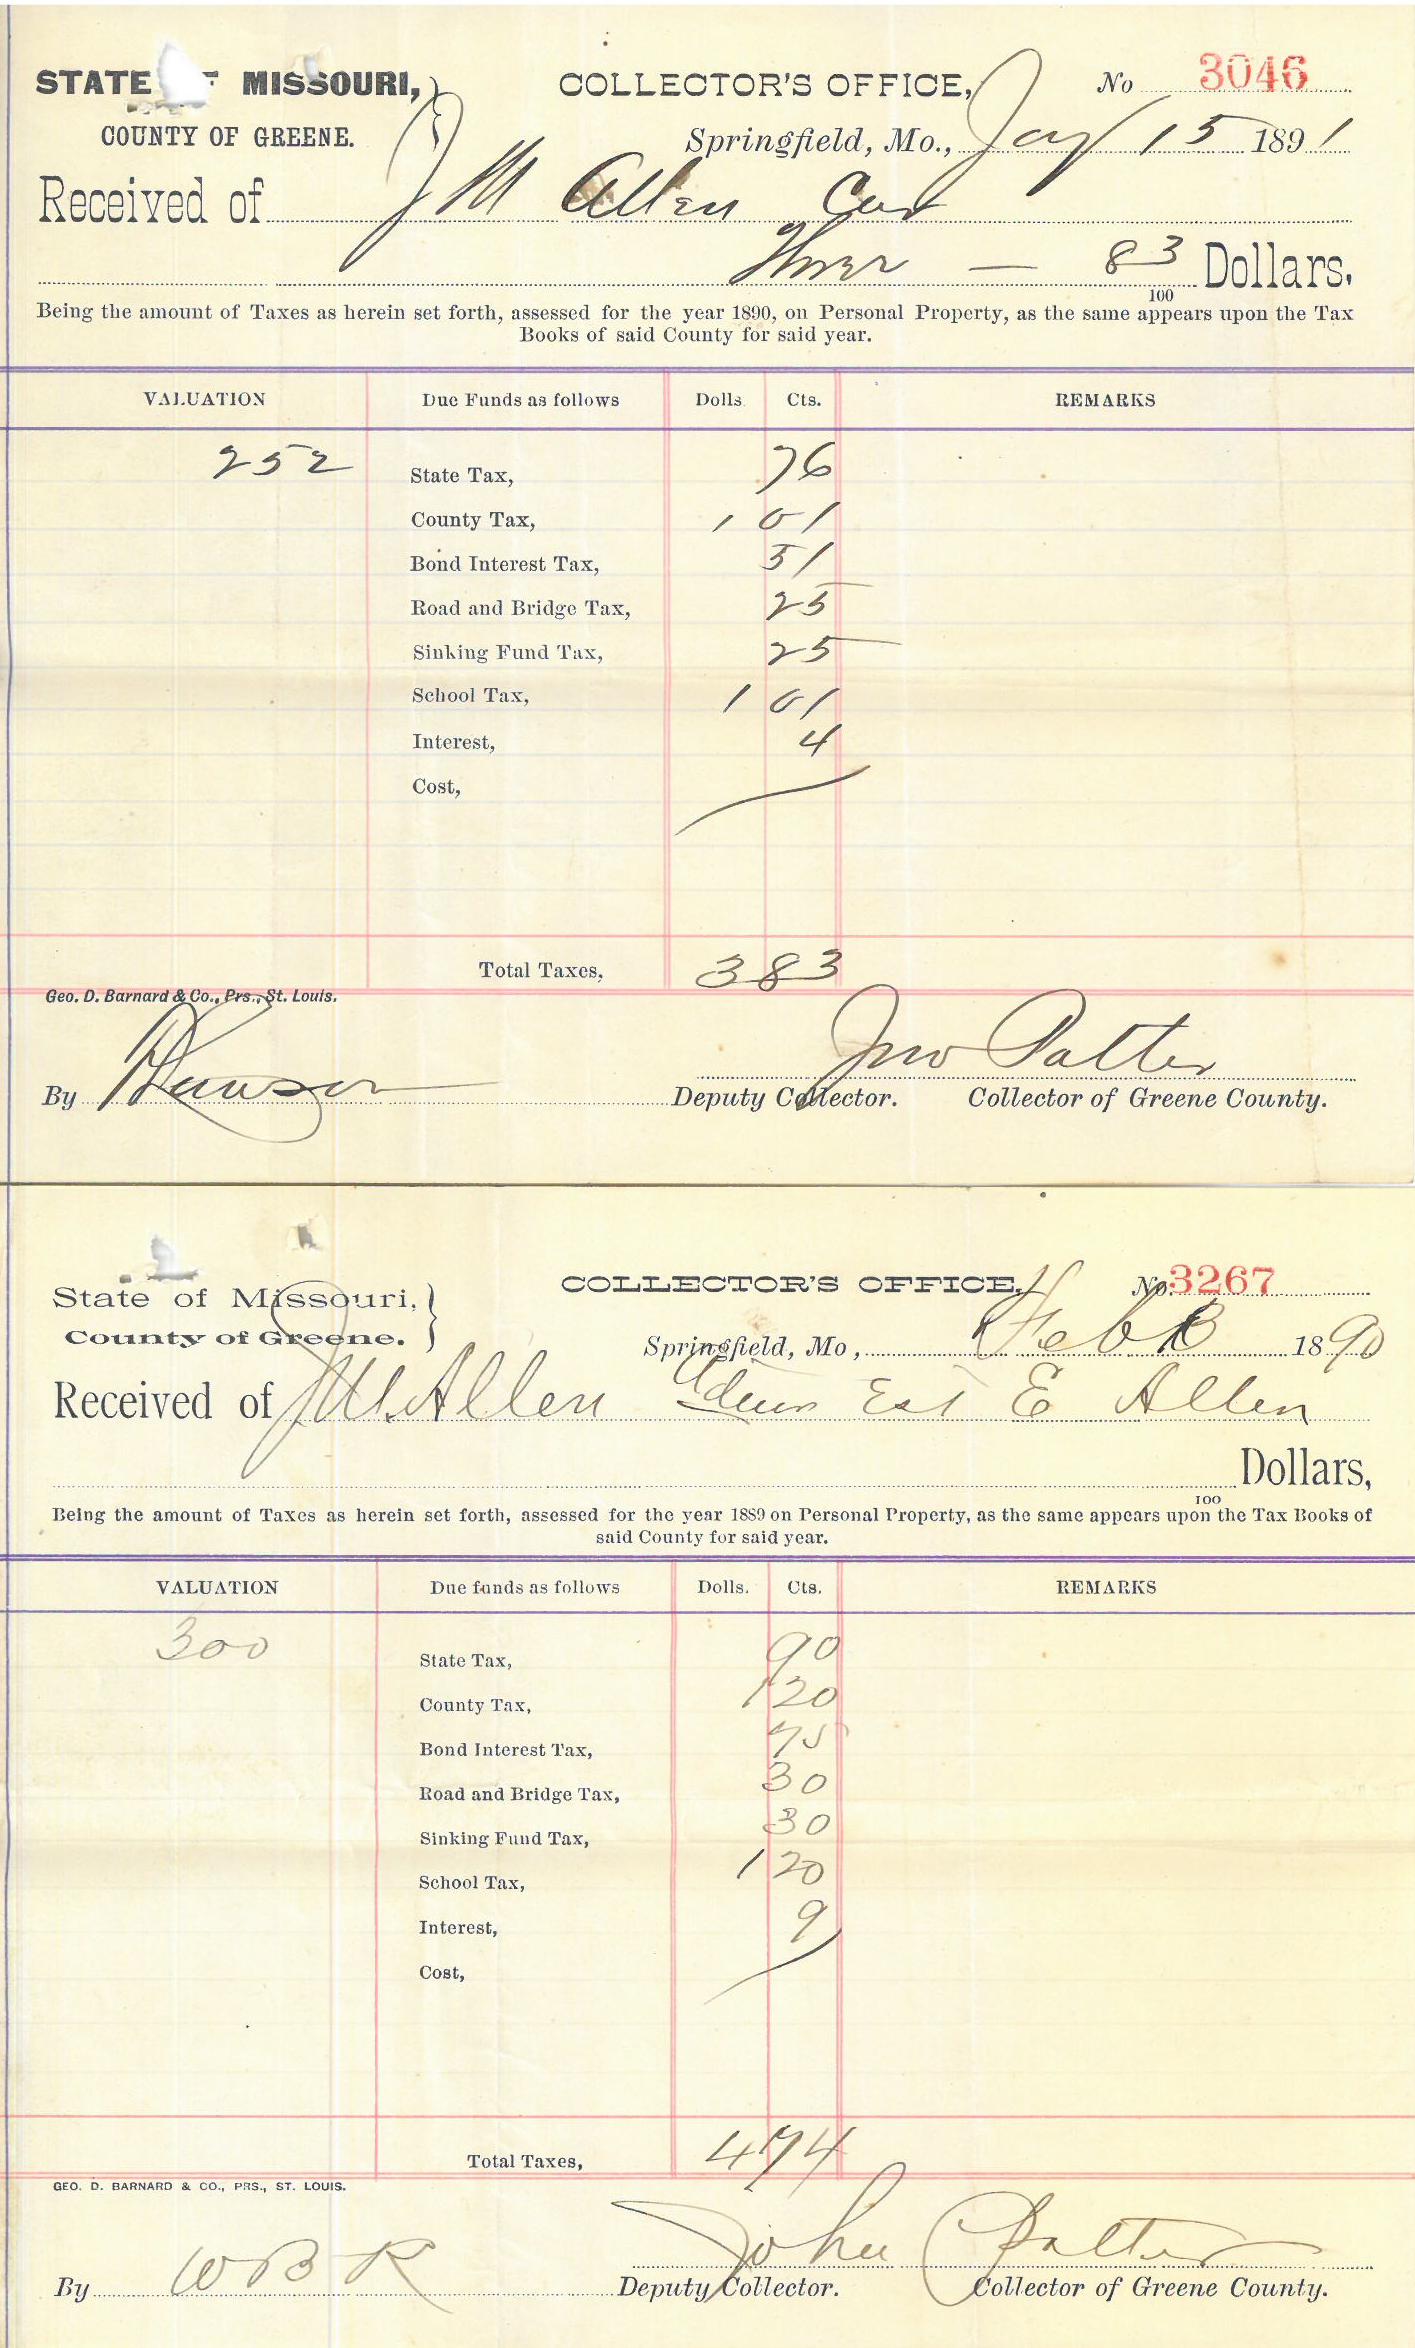 STATE OF MISSOURI, COLLECTOR'S OFFICE, No 3046
COUNTY OF GREENE. Springfield, Mo., Jay 15 1891
Received of J M Allen Cur
Three — 83 Dollars.
100
Being the amount of Taxes as herein set forth, assessed for the year 1890, on Personal Property, as the same appears upon the Tax
Books of said County for said year.
VALUATION Due Funds as follows Dolls. Cts. REMARKS
252 State Tax, 76
County Tax, 1 01
Bond Interest Tax, 51
Road and Bridge Tax, 25
Sinking Fund Tax, 25
School Tax, 1 01
Interest, 4
Cost,
Total Taxes, 3 83
Geo. D. Barnard & Co., Prs., St. Louis.
Jno Patter
By Deputy Collector. Collector of Greene County.
State of Missouri, COLLECTOR'S OFFICE, No. 3267
County of Greene. Springfield, Mo, Feb 1890
Received of J M. Allen Est E Allen
Dollars,
100
Being the amount of Taxes as herein set forth, assessed for the year 1889 on Personal Property, as the same appears upon the Tax Books of
said County for said year.
VALUATION Due funds as follows Dolls. Cts. REMARKS
300 State Tax, 90
County Tax, 1 20
Bond Interest Tax, 75
Road and Bridge Tax, 30
Sinking Fund Tax, 30
School Tax, 1 20
Interest, 9
Cost,
Total Taxes, 4 74
GEO. D. BARNARD & CO., PRS., ST. LOUIS.
John Patter
By W B R Deputy Collector. Collector of Greene County.